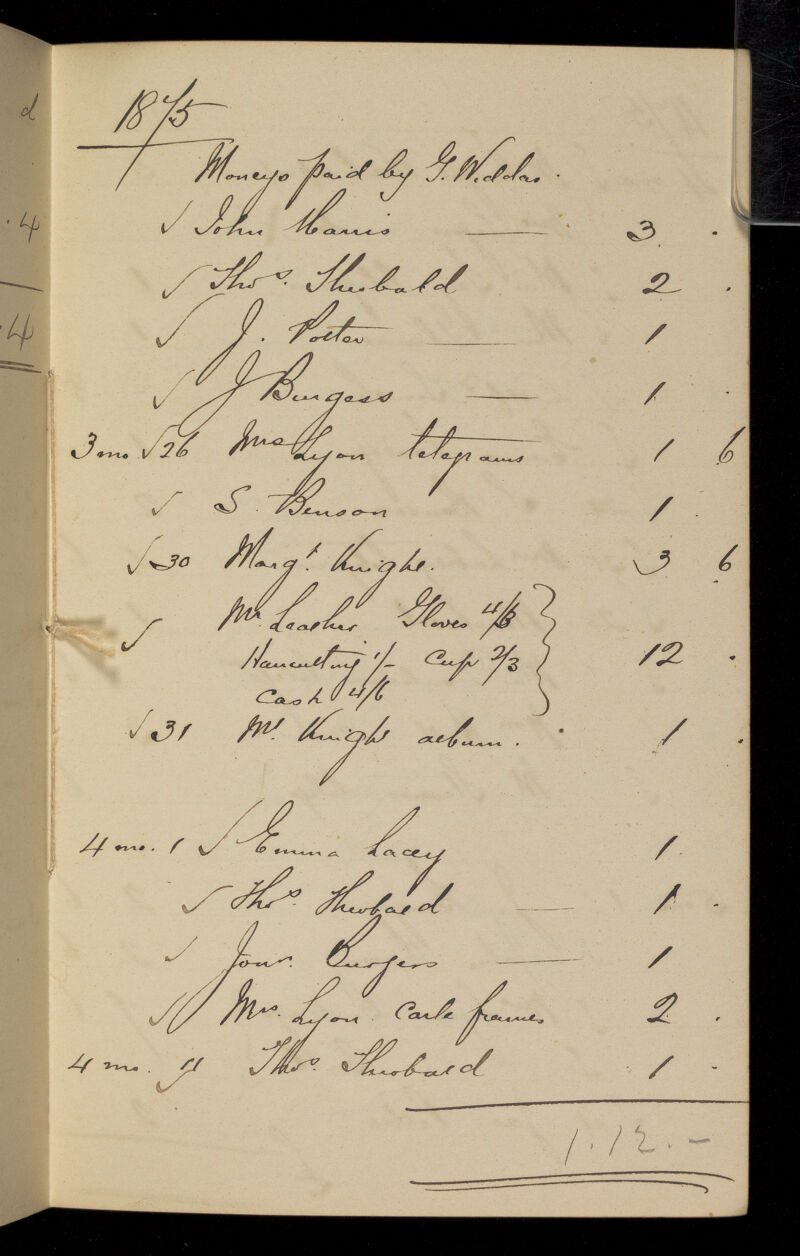 d
. 4
. 4
1875
Moneys paid by G. Widdas.
√ John Harris — 3 .
√ Thos. Theobald 2 .
√ J. Porter — 1
√ J Burgess — 1 .
3 mo. √ 26 Mrs Lyon telegrams 1 6
√ S. Benson 1 .
√ 30 Margt. Knight. 3 6
√ Mr Leather Gloves 4/3
cup 2/3 12 .
Cash 4/6
√ 31 Mr. Knight album. 1 .
4 mo. 1 √ Emma Lacey 1 .
√ Thos. Theobald — 1 .
√ Jonn. Burgess — 1
√ Mrs. Lyon. Carte frames 2 .
4 mo. 11 Thos. Theobald 1 .
1.12.-